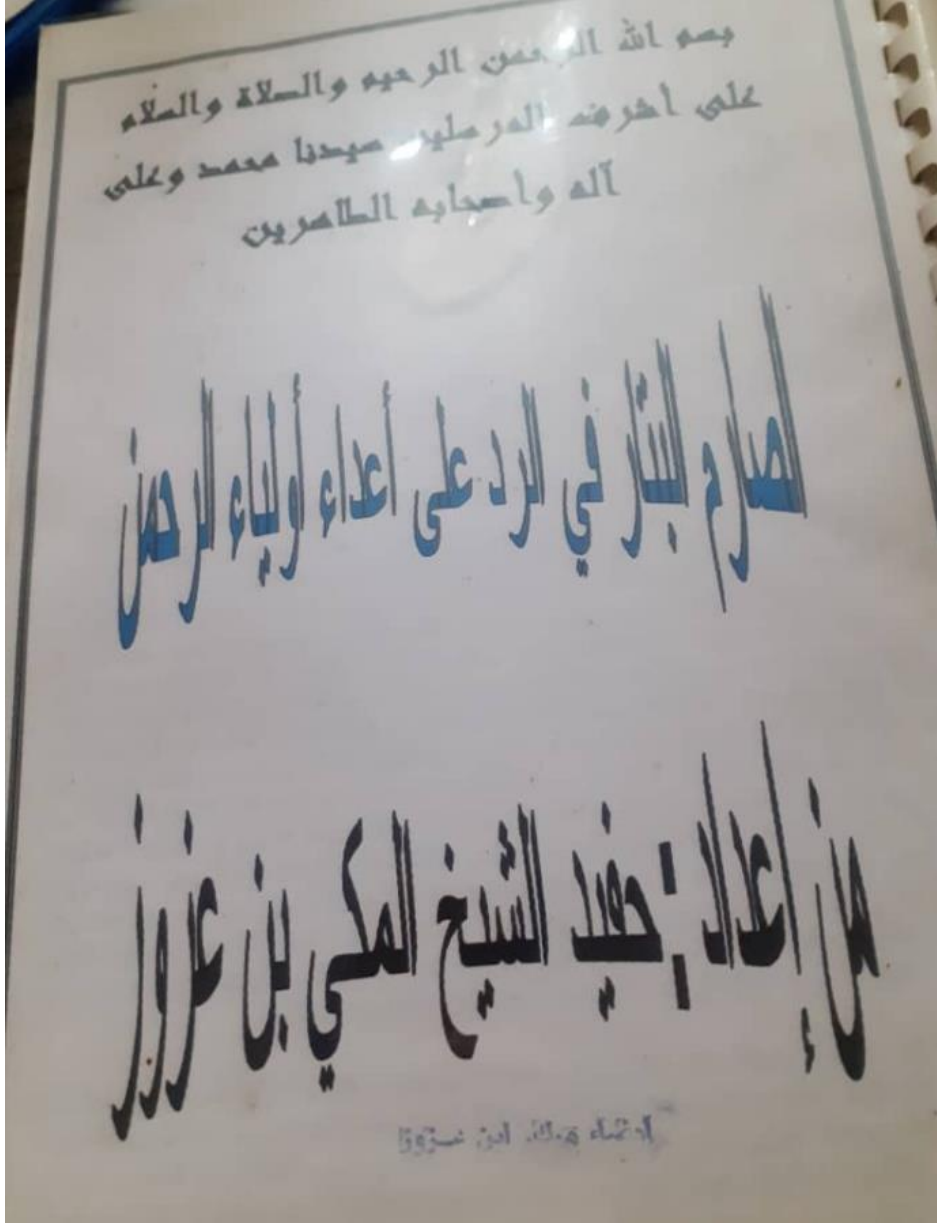 بسم الله الرحمن الرحيم والصلاة والسلام
على أشرف المرسلين سيدنا محمد وعلى
آله وأصحابه الطاهرين
الصارم البتار في الرد على أعداء أولياء الرحمن
من إعداد : حفيد الشيخ المكي بن عزوز